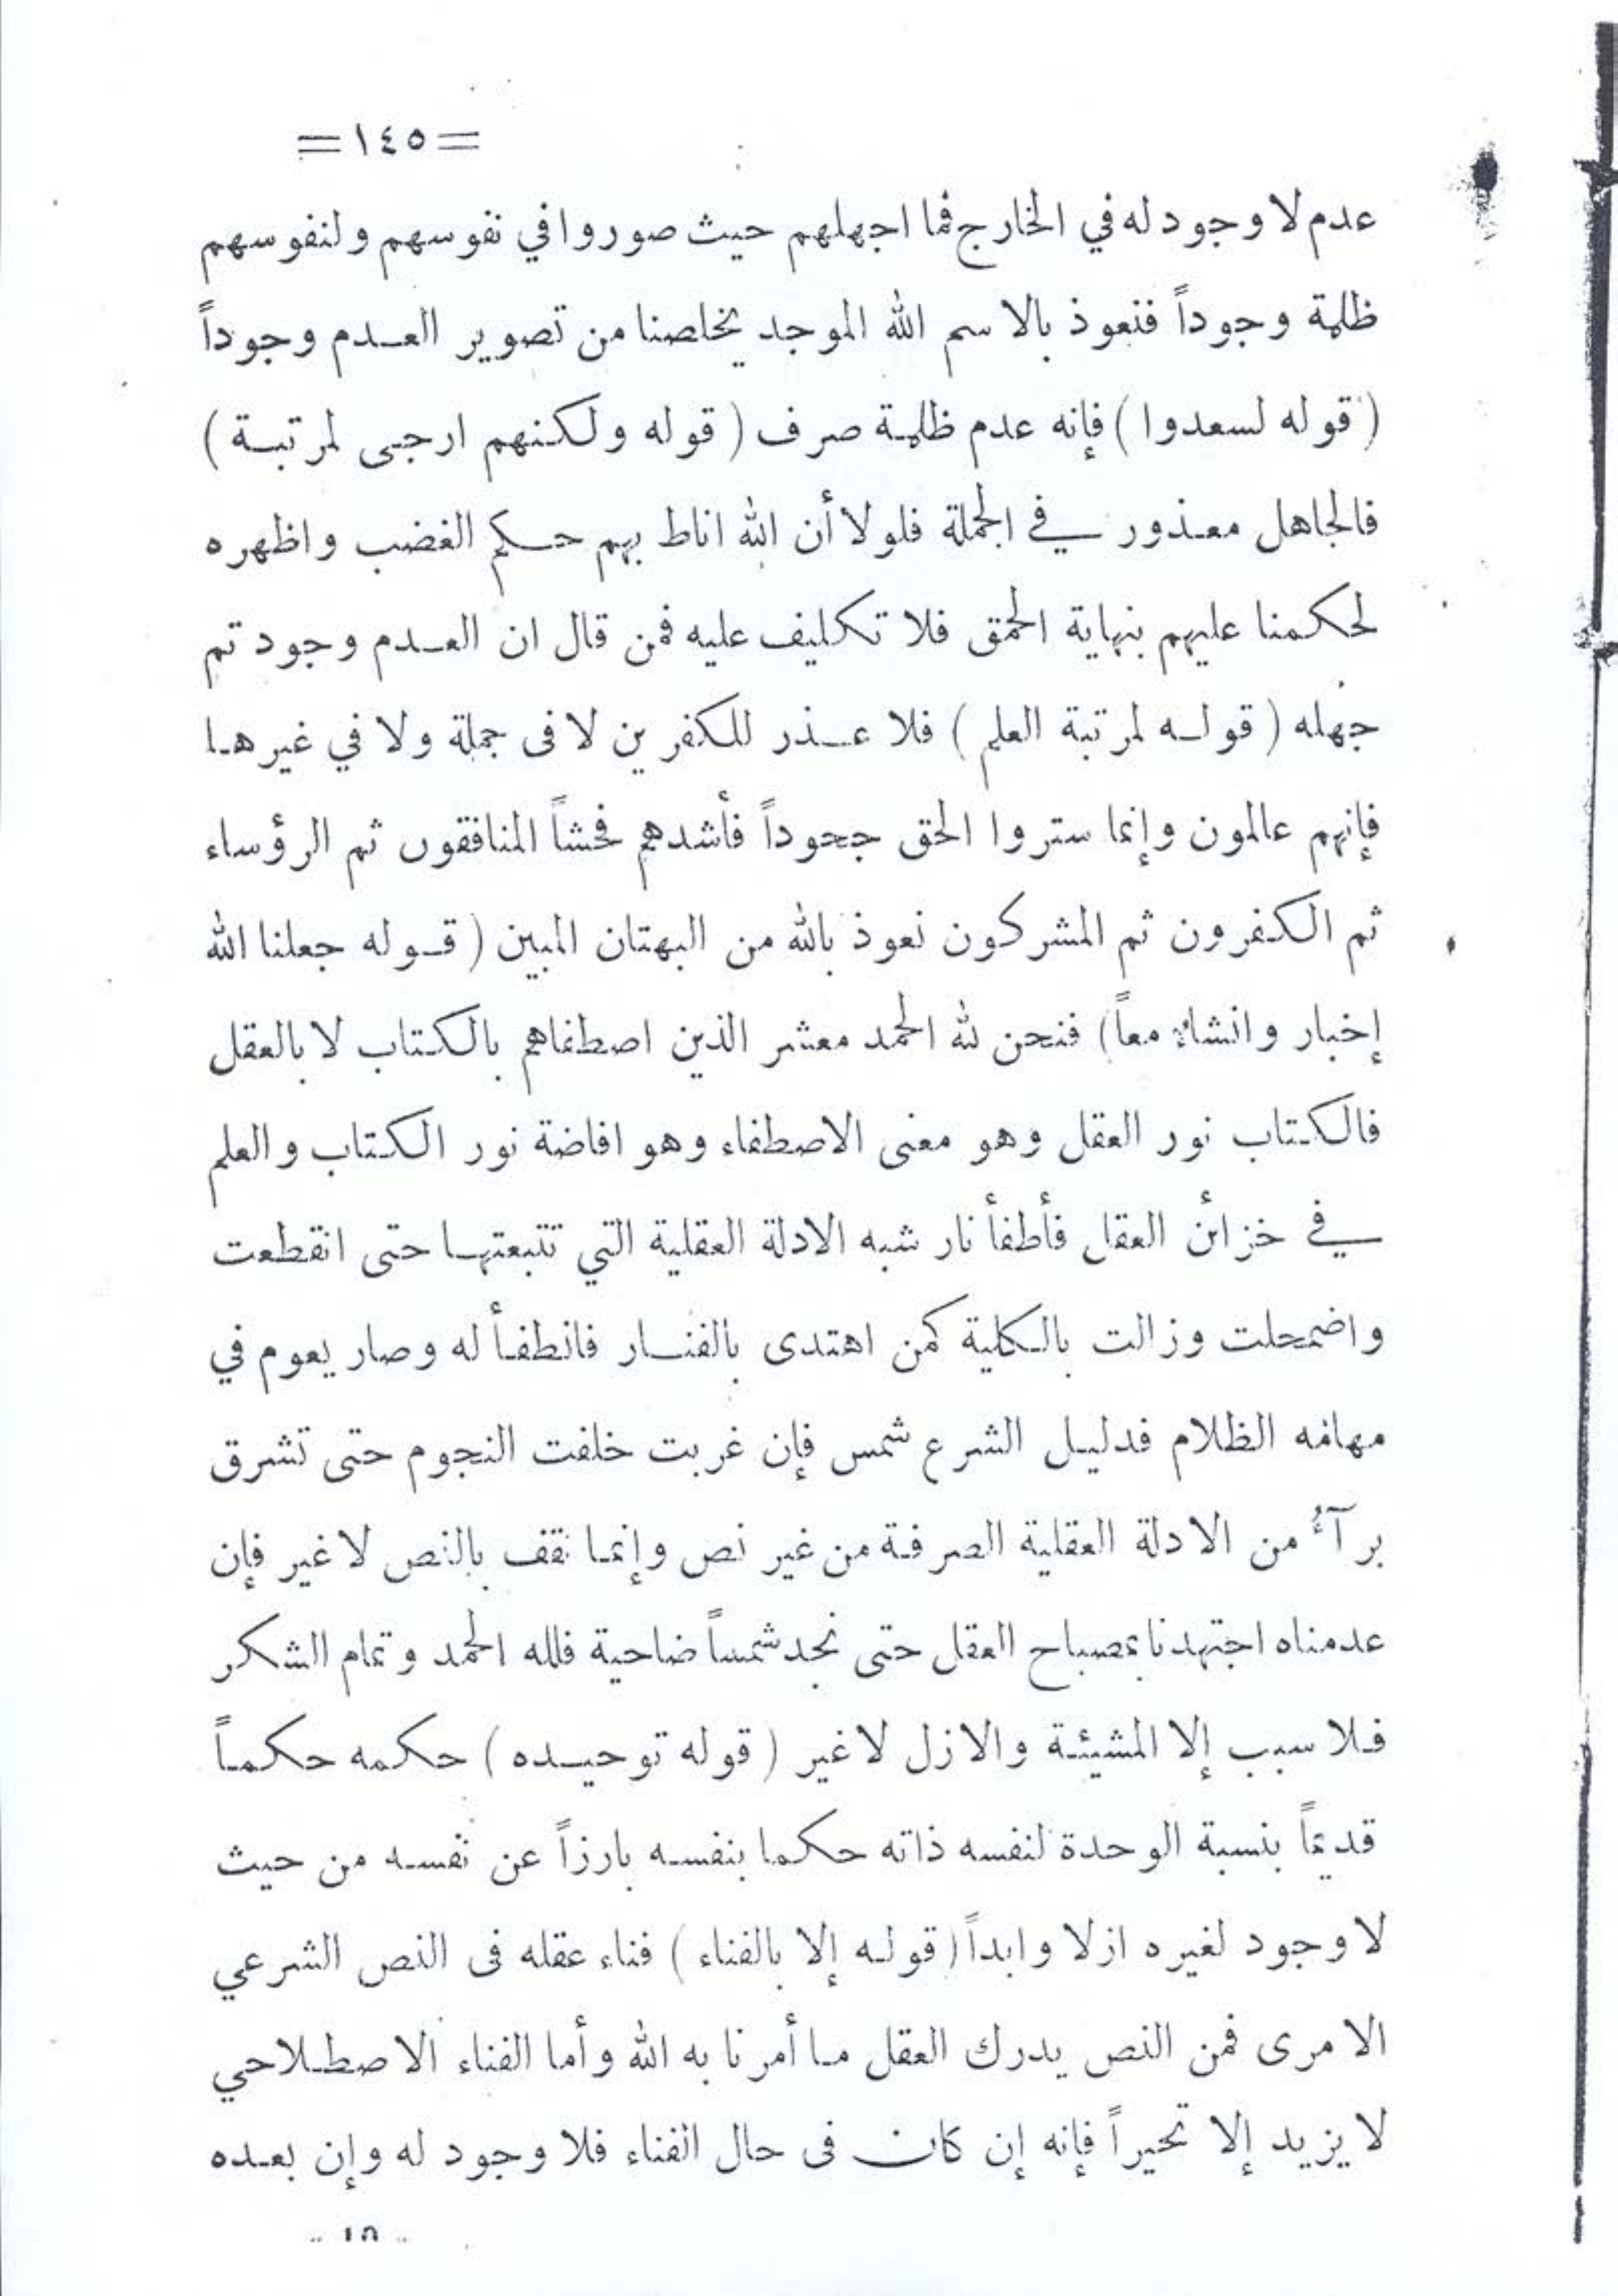 =١٤٥=
عدم لا وجود له في الخارج فما اجهلهم حيث صوروا في نفوسهم ولنفوسهم
ظلمة وجوداً فنعوذ بالاسم الله الموجد يخلصنا من تصوير العدم وجوداً
( قوله لسعدوا ) فإنه عدم ظلمة صرف ( قوله ولكنهم ارجى لمرتبة )
فالجاهل معذور في الجملة فلولا أن الله اناط بهم حكم الغضب واظهره
لحكمنا عليهم بنهاية الحمق فلا تكليف عليه فمن قال ان العدم وجود تم
جهله ( قوله لمرتبة العلم ) فلا عذر للكفرين لا فى جملة ولا في غيرها
فإنهم عالمون وإنما ستروا الحق جحوداً فأشدهم فحشاً المنافقون ثم الرؤساء
ثم الكفرون ثم المشركون نعوذ بالله من البهتان المبين ( قوله جعلنا الله
إخبار وانشاء معاً ) فنحن لله الحمد معشر الذين اصطفاهم بالكتاب لا بالعقل
فالكتاب نور العقل وهو معنى الاصطفاء وهو افاضة نور الكتاب والعلم
في خزائن العقل فأطفأ نار شبه الادلة العقلية التي تتبعتها حتى انقطعت
واضمحلت وزالت بالكلية كمن اهتدى بالفنار فانطفأ له وصار يعوم في
مهامه الظلام فدليل الشرع شمس فإن غربت خلفت النجوم حتى تشرق
برآءُ من الادلة العقلية الصرفة من غير نص وإنما نقف بالنص لا غير فإن
عدمناه اجتهدنا بمصباح العقل حتى نجد شمساً ضاحية فلله الحمد وتمام الشكر
فلا سبب إلا المشيئة والازل لا غير ( قوله توحيده ) حكمه حكماً
قديماً بنسبة الوحدة لنفسه ذاته حكما بنفسه بارزاً عن نفسه من حيث
لا وجود لغيره ازلا وابداً ( قوله إلا بالفناء ) فناء عقله فى النص الشرعي
الامرى فمن النص يدرك العقل ما أمرنا به الله وأما الفناء الاصطلاحي
لا يزيد إلا تحيراً فإنه إن كان فى حال الفناء فلا وجود له وإن بعده